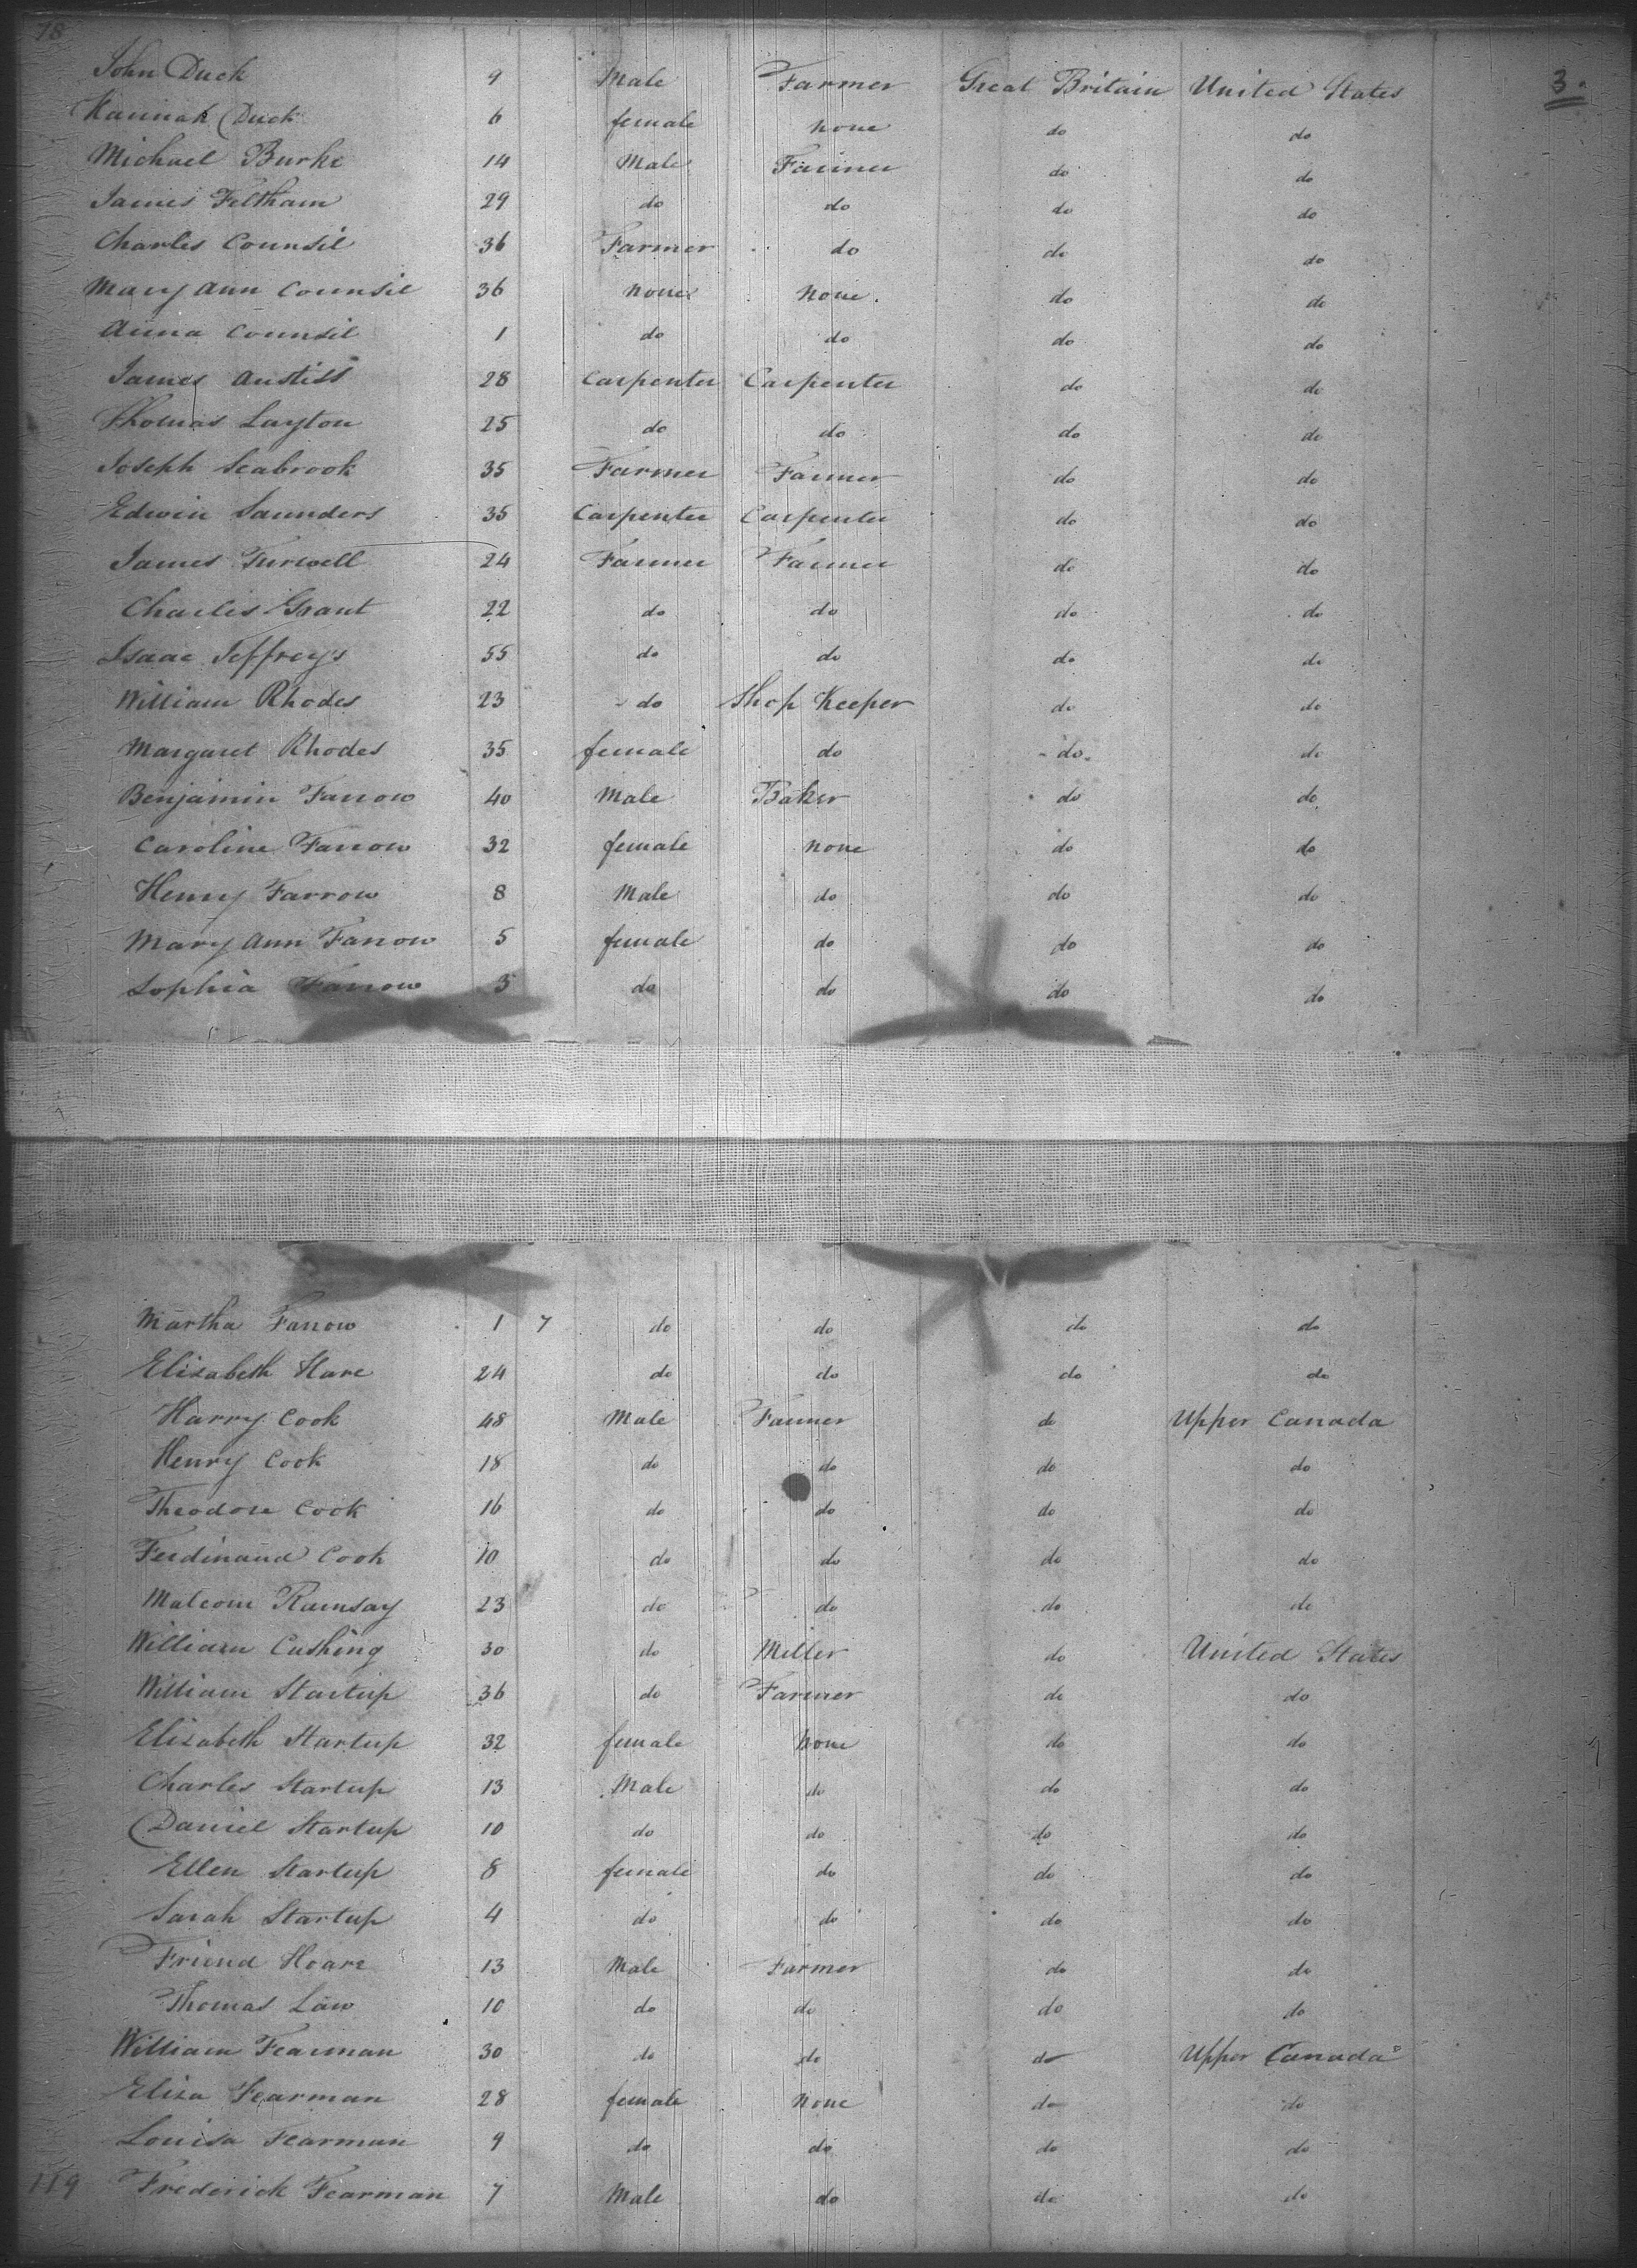 78
3.
John Duck 9 Male Farmer Great Britain United States
Hannah Duck 6 female none do do
Michael Burke 14 Male Farmer do do
James Feltham 29 do do do do
Charles Counsil 36 Farmer do do do
Mary Ann Counsil 36 none none. do do
Anna Counsil 1 do do do do
James Carpenter Carpenter do do
Thomas Layton 25 do do do do
Joseph Seabrook 35 Farmer Farmer do do
Edwin Saunders 35 Carpenter Carpenter do do
James Turwell 24 Farmer Farmer do do
Charles Grant 22 do do do do
Isaac Jeffreys 55 do do do do
William Rhodes 23 do Shop Keeper do do
Margaret Rhodes 35 female do do do
Benjamin Farrow 40 Male Baker do do
Caroline Farrow 32 female none do do
Henry Farrow 8 Male do do do
Mary Ann Farrow 5 female do do do
Sophia Farrow 3 do do do do
Martha Farrow 1 7 do do do do
Elizabeth Hare 24 do do do do
Harry Cook 48 Male Farmer do Upper Canada
Henry Cook 18 do do do do
Theodore Cook 16 do do do do
Ferdinand Cook 10 do do do do
Malcom Ramsay 23 do do do do
William Cushing 30 do Miller do United States
William Startup 36 do Farmer do do
Elizabeth Startup 32 female none do do
Charles Startup 13 Male do do do
Daniel Startup 10 do do do do
Ellen Startup 8 female do do do
Sarah Startup 4 do do do do
Friend Hoare 13 Male Farmer do do
Thomas Law 10 do do do do
William Fearman 30 do do do Upper Canada
Eliza Fearman 28 female none do do
Louisa Fearman 9 do do do do
119 Frederick Fearman 7 Male do do do